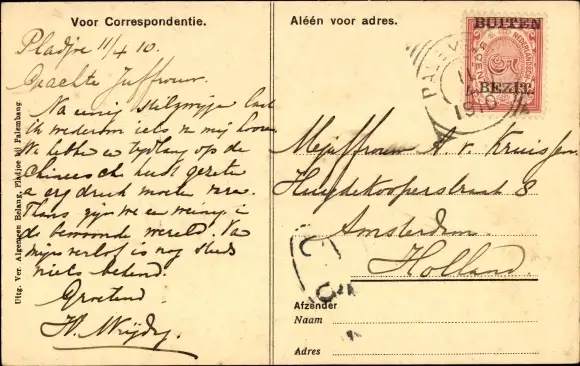 Voor Correspondentie.
Pladjoe 11/4 10.
Geachte Juffrouw.
Na eenig stilzwijgen laat
ik wederom iets v. mij hooren
We hebben e tijdlang op de
hebt gezeten
e erg druk moeten
Thans zijn we en weinig i
de bewoonde wereld. Van
mijn verlof is nog steeds
niets bekend.
Groetend
Uitg. Ver. Algemeen Belang, Pladjoe bij Palembang.
Aléén voor adres.
BUITEN
BEZIT.
Mejuffrouw A v. Kruissen
Huydekooperstraat 8
Amsterdam.
Holland.
Afzender
Naam
Adres